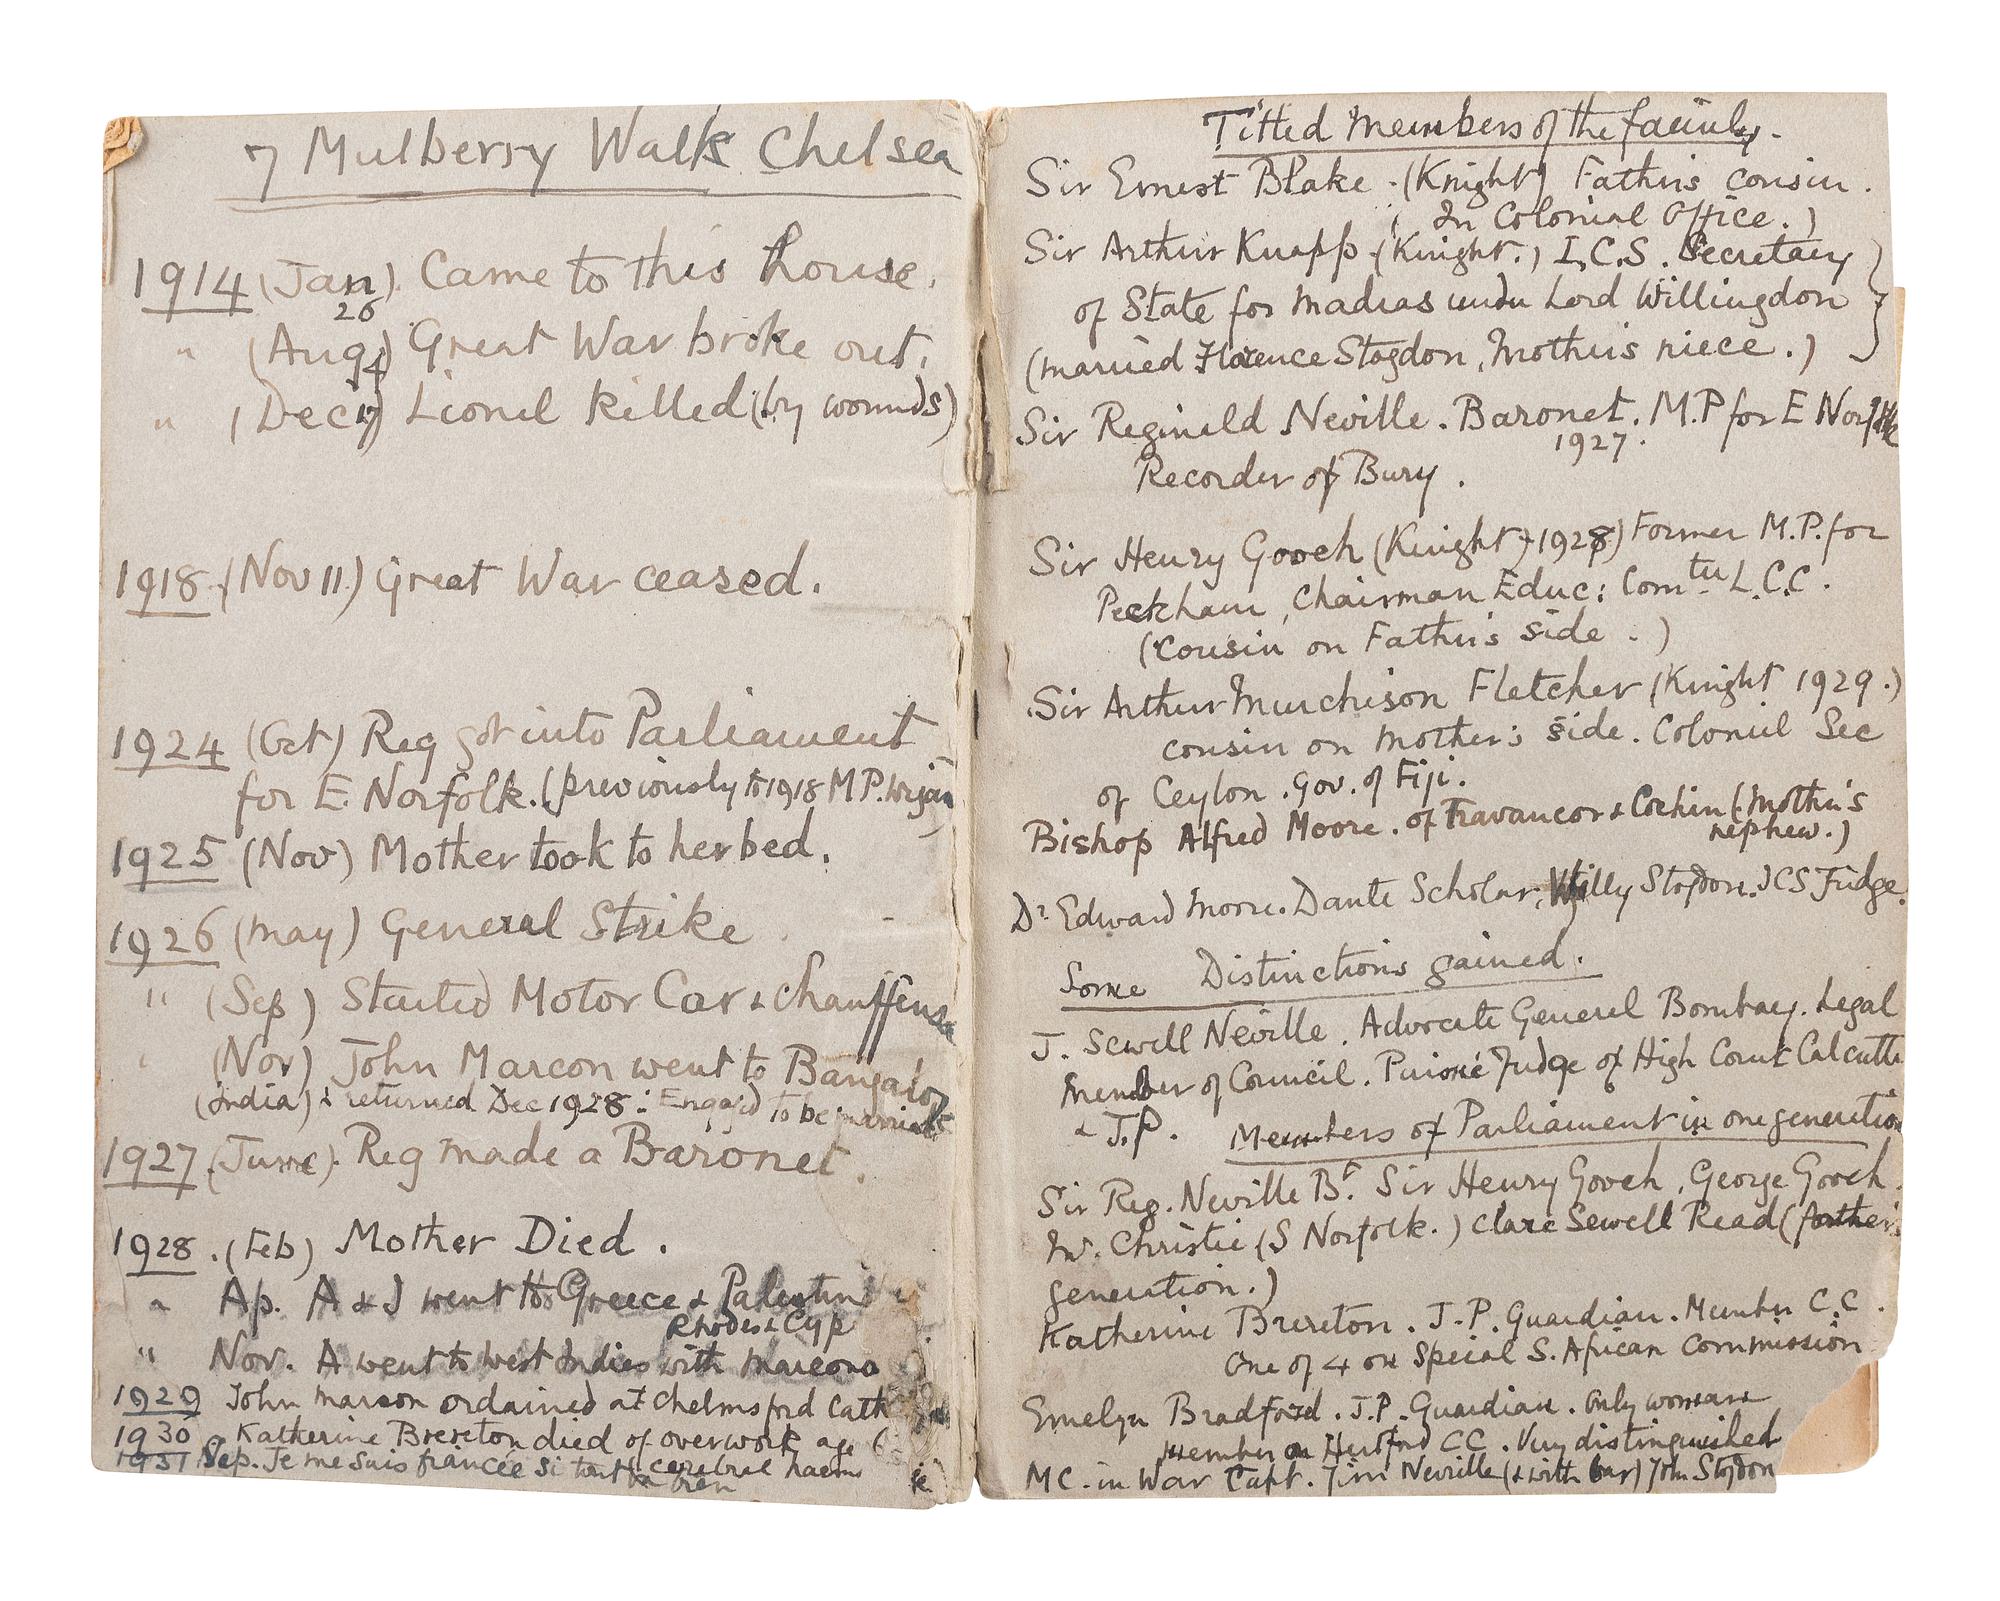 7 Mulberry Walk Chelsea
1914 (Jan 26) Came to this house.
" (Aug 4) Great War broke out.
" (Dec 17) Lionel killed (by wounds)
1918 (Nov 11) Great War ceased.
1924 (Oct) Reg got into Parliament
for E. Norfolk. (previously to 1918 M.P. Wigan)
1925 (Nov) Mother took to her bed.
1926 (May) General Strike
" (Sep) Started Motor Car & Chauffeur
" (Nov) John Marcon went to Bangalor
(India) & returned Dec 1928: Engaged to be married
1927 (June). Reg made a Baronet.
1928. (Feb) Mother Died.
" Ap. A & I went to Greece & Palestine
Rhodes & Cyp
" Nov. A went to West Indies with Marcons
1929 John Marcon ordained at Chelmsford Cath
1930 Katherine Brereton died of overwork age
cerebral haem
1931 Sep. Je me suis fiancée si tout va bien
Titled Members of the family.
Sir Ernest Blake. (Knight) Father's cousin.
(In Colonial Office.)
Sir Arthur Knapp. (Knight.) I.C.S. Secretary
of State for Madras under Lord Willingdon
(married Florence Stogdon, Mother's niece.)
Sir Reginald Neville. Baronet. M.P for E Norfolk
1927.
Recorder of Bury.
Sir Henry Gooch (Knight) 1928) Former M.P. for
Peckham, Chairman Educ: Comtee L.C.C.
(Cousin on Father's side.)
Sir Arthur Murchison Fletcher (Knight 1929.)
cousin on Mother's side. Colonial Sec
of Ceylon. Gov. of Fiji.
Bishop Alfred Moore. of Travancor & Cochin (Mother's
nephew.)
Dr Edward Moore. Dante Scholar, Willy Stogdon. ICS Judge.
Some Distinctions gained.
J. Sewell Neville. Advocate General Bombay. Legal
Member of Council. Puisné Judge of High Court Calcutta
& J.P.
Members of Parliament in one generation
Sir Reg. Neville Bt. Sir Henry Gooch, George Gooch.
W. Christie (S Norfolk.) Clare Sewell Read (further
generation.)
Katherine Brereton. J.P. Guardian. Member C.C.
One of 4 on Special S. African Commission
Emelyn Bradford. J.P. Guardian. Only woman
member on Hertford CC. Very distinguished
MC. in War Capt. Jim Neville (& with bar) John Stogdon